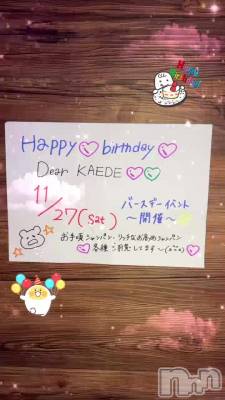 Happy birthday
Happy birthday
Dear KAEDE
11/27(Sat)
バースデーイベント
～開催～
お手頃シャンパン・リッチなお高めシャンパン
各種ご用意してます～(^o^)
nn